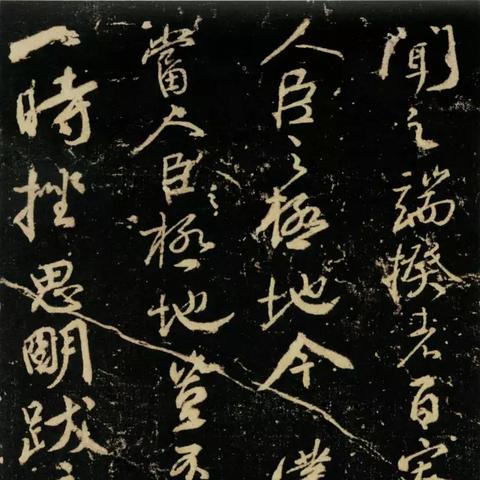 聞之端揆者百寮
人臣之極地今僕
當人臣之極地豈不
一時挫思明跋